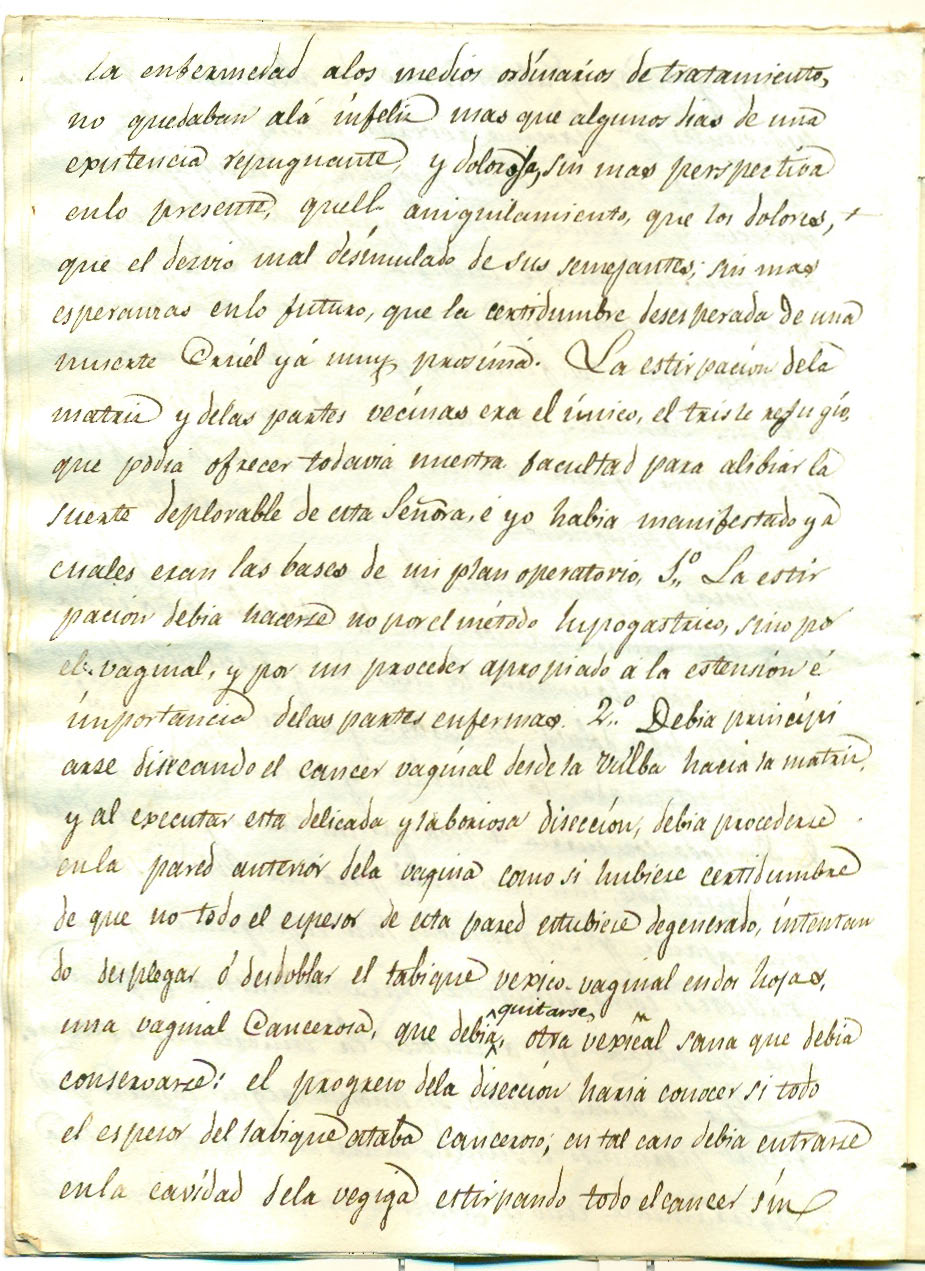 la enfermedad alos medios ordínaríos de tratamiento,
no quedaban alá ínfeliz mas que algunos dias de una
existencia repugnante, y dolorosa, sin mas perspectiva
enlo presente, quell aniquilamiento, que los dolores, +
que el dezvio mal désímulado de sus semejantes; sin mas
esperanzas enlo futuro, que la certidumbre desesperada de una
muerte Cruél yá muy prosímá. La estirpación dela
matriz y delas partes vecinas era el único, el triste refugío,
que podia ofrecer todavia nuestra facultad para alibiar la
suerte deplorable de esta Señora, é yo habia manifestado ya
cuales eran las bases de mi plan operatorio, 1.º La estir
pacion debia hacerse no por el método hipogastrico, sino por
el vaginal, y por un proceder apropiado á la estensión é
ímportancia delas partes enfermas. 2.º Debia príncipi
arse disecando el cancer vagínal desde la Vúlba hacia la matriz,
y al executar esta delicada y laboriosa disección, debia procederse
enla pared anteriór dela vagina como si hubiese certidumbre
de que no todo el espesor de esta pared estubiese degenerado, íntentan
do desplegar ó desdoblar el tabique vexico-vaginal endos hojas,
una vaginal Cancerosa, que debia quitarse, otra vexical sana que debia
conservarse: el progreso dela disección haria conocer si todo
el espesor del tabique estaba canceroso; en tal caso debia entrarse
enla cavídad dela vegiga estirpando todo el cancer sín